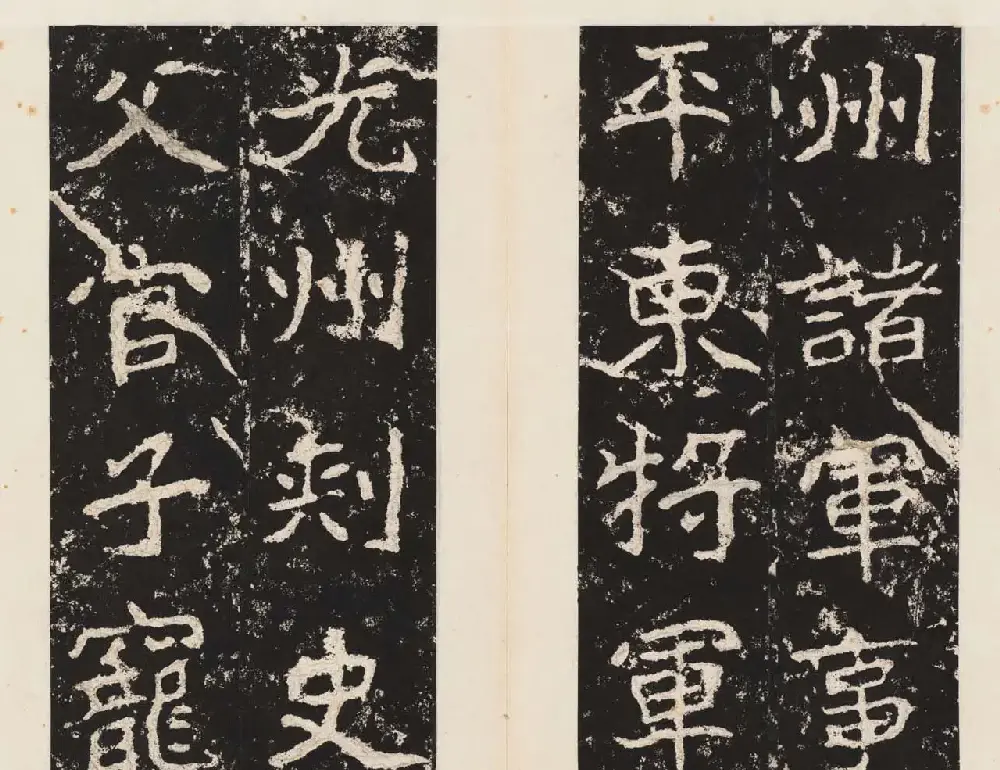 州諸軍事
平東將軍
光州刺史
父官子寵